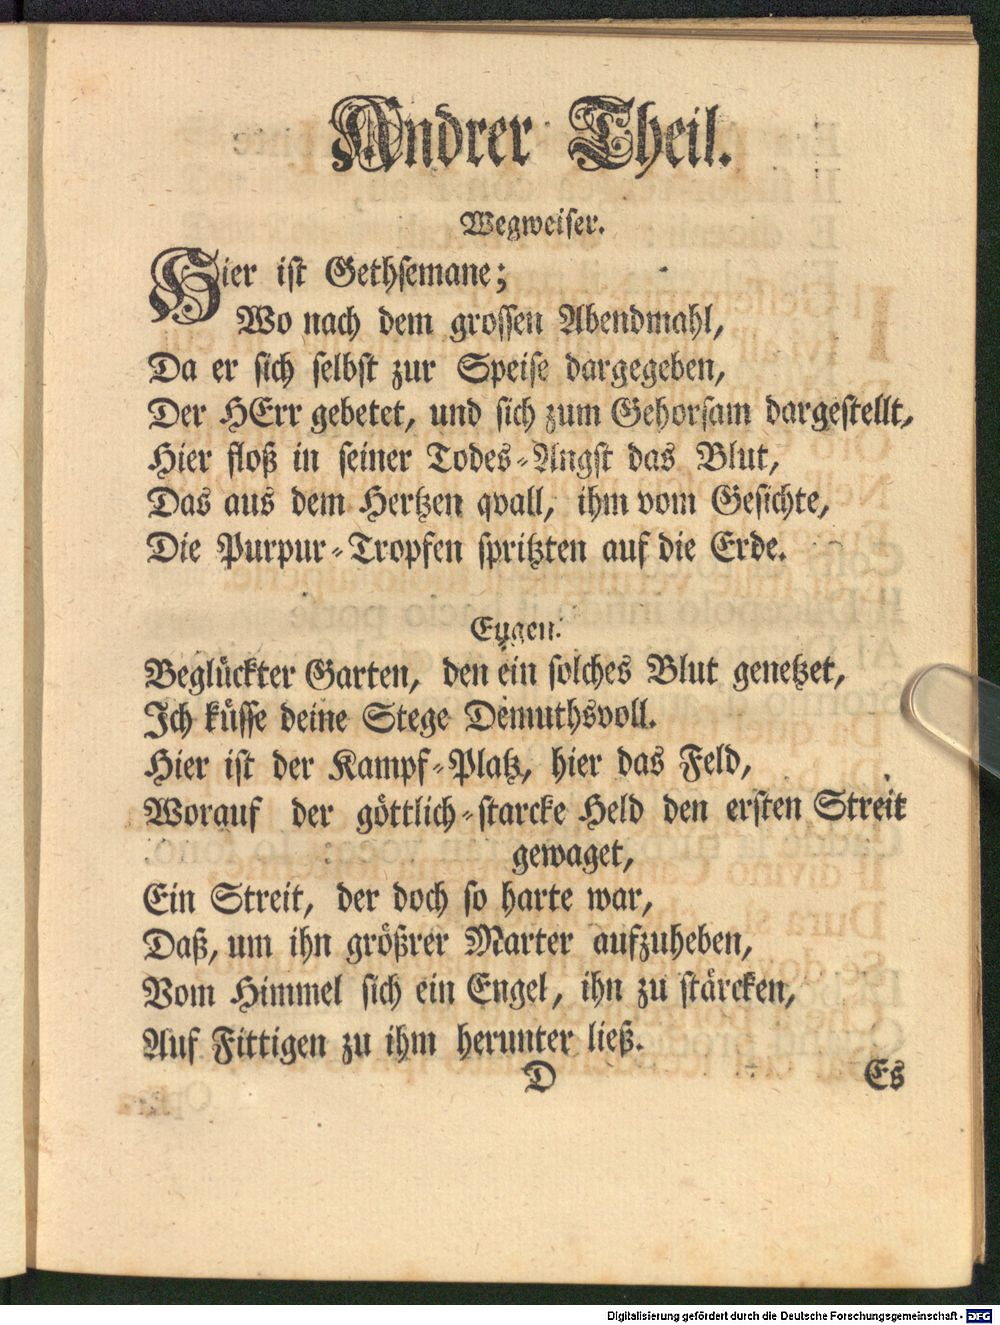 Andrer Theil.
Wegweiser.
Hier ist Gethsemane;
Wo nach dem grossen Abendmahl,
Da er sich selbst zur Speise dargegeben,
Der HErr gebetet, und sich zum Gehorsam dargestellt,
Hier floß in seiner Todes-Angst das Blut,
Das aus dem Hertzen qvall, ihm vom Gesichte,
Die Purpur-Tropfen spritzten auf die Erde.
Eugen.
Beglückter Garten, den ein solches Blut genetzet,
Ich küsse deine Stege Demuthsvoll.
Hier ist der Kampf-Platz, hier das Feld,
Worauf der göttlich-starcke Held den ersten Streit
gewaget,
Ein Streit, der doch so harte war,
Daß, um ihn größrer Marter aufzuheben,
Vom Himmel sich ein Engel, ihn zu stärcken,
Auf Fittigen zu ihm herunter ließ.
D Es
Digitalisierung gefördert durch die Deutsche Forschungsgemeinschaft - DFG